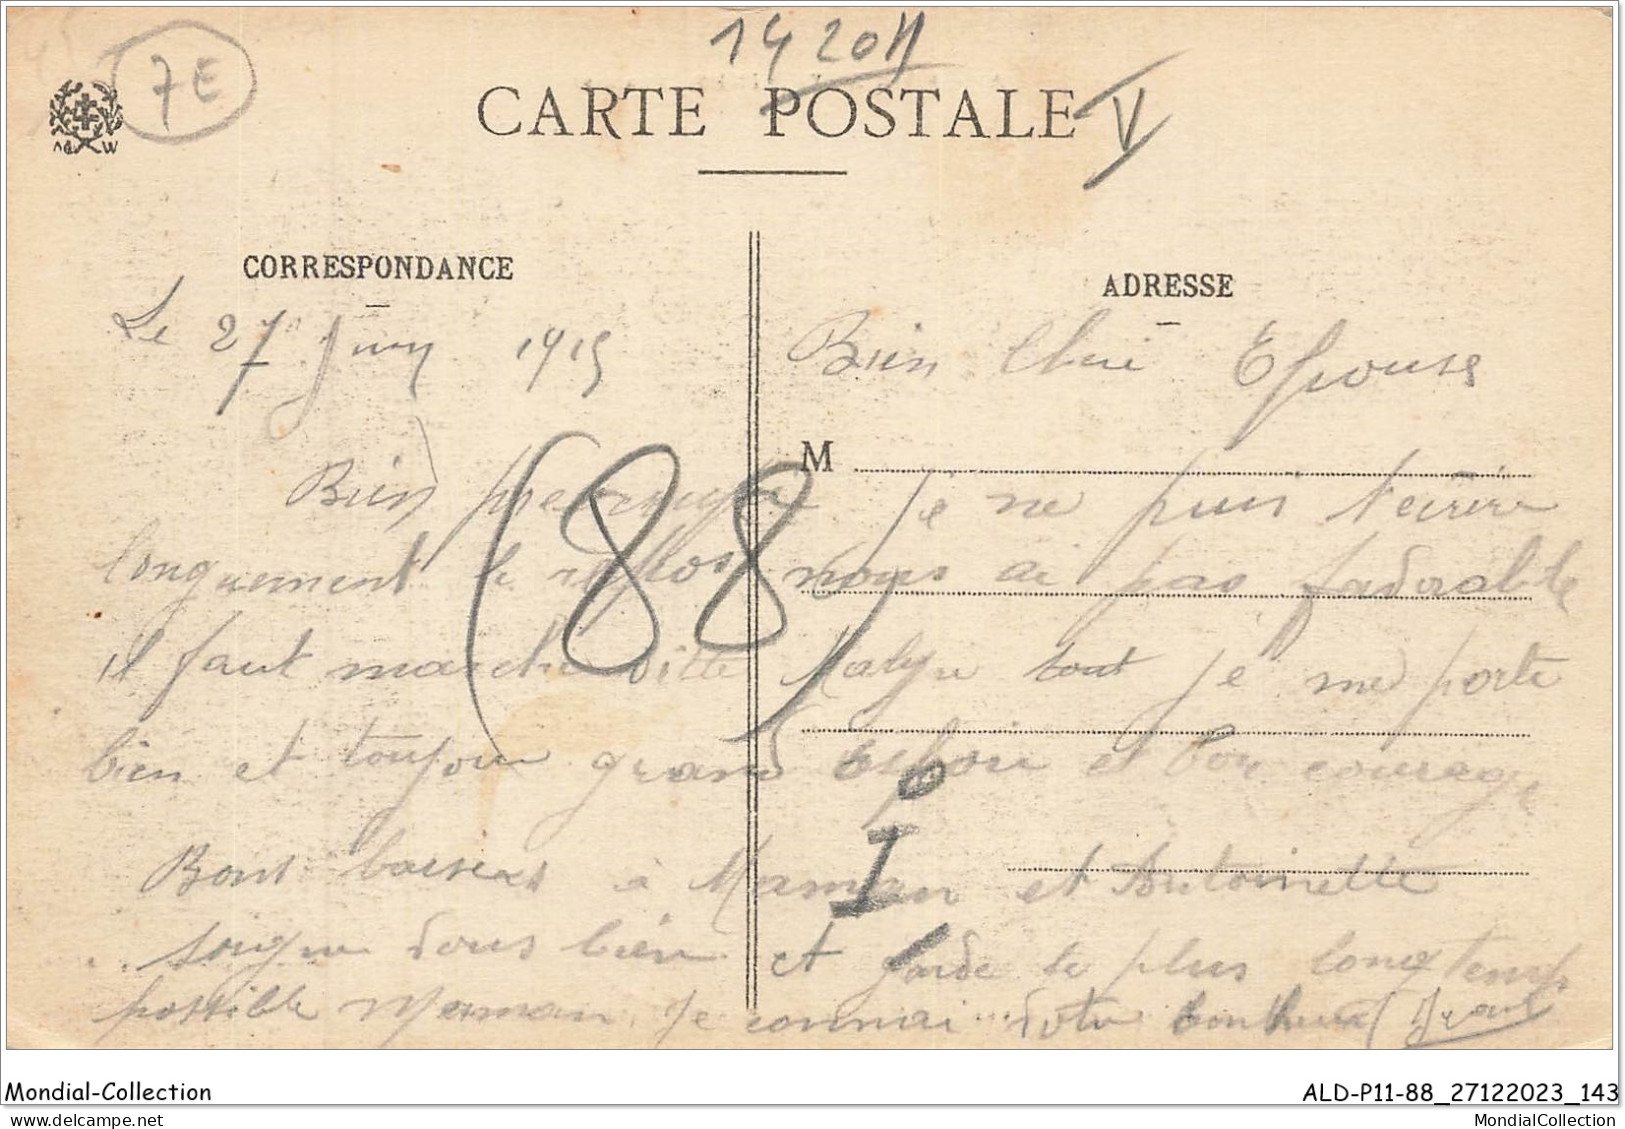 14 20 H
7E
CARTE POSTALE V
CORRESPONDANCE
ADRESSE
Le 27 Juin 1915
Bien Cheri Epouse
M
Bien je ne puis t'ecrire
longuement le repos nous ai pas fadorable
il faut marche vitte Malgre tout je me porte
bien et toujour grand espoir et bon courage
(88)
I
Bons baisers à Maman et Antoinette
soigne vous bien et garde le plus longtemp
possible Maman. Je connai votre bonheur
ALD-P11-88_27122023_143
Mondial-Collection
MondialCollection